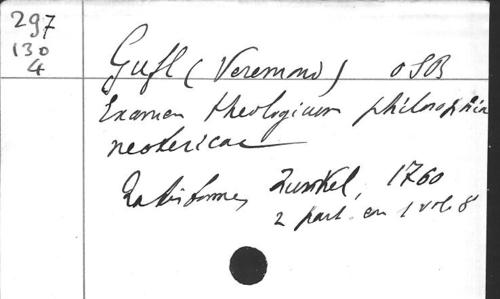 297
130
4
Gufl (Veremond) OSB
Examen theologicum philosophiae
neotericae
Ratisbonne, Zunkel, 1760
2 part. en 1 vol. 8°